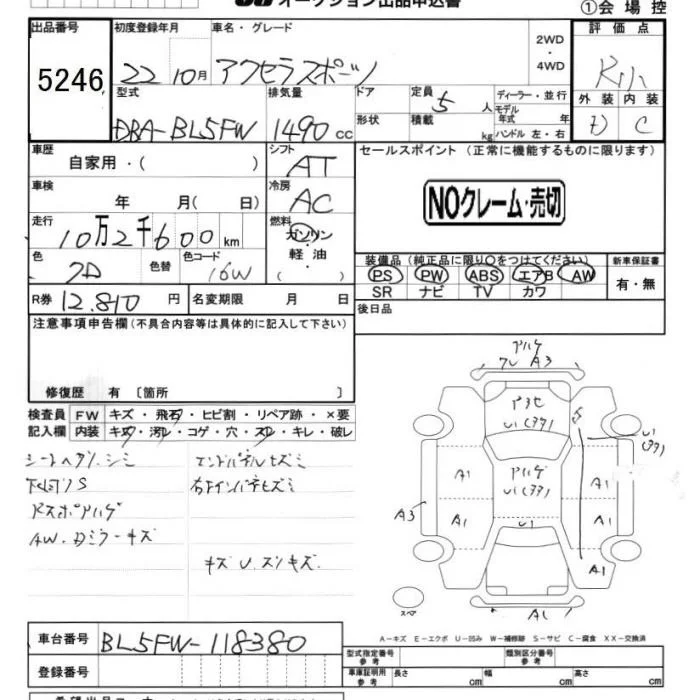 オークション出品申込書
①会場控
出品番号
5246
初度登録年月
22 10月
車名・グレード
アクセラスポーツ
2WD
・
4WD
評価点
外装 内装
D C
型式
DBA-BL5FW
排気量
1490 CC
ドア
形状
定員
5 人
積載
kg
ディーラー・並行
モデル
年式 年
ハンドル 左・右
車歴
自家用・( )
シフト
AT
セールスポイント (正常に機能するものに限ります)
車検
年 月( 日)
冷房
AC
NOクレーム・売切
走行
10万2千600 km
燃料
ガソリン
・
軽油
( )
色
色替
色コード
16W
装備品 (純正品に限り○をつけてください)
PS PW ABS エアB AW
SR ナビ TV カワ
新車保証書
有・無
R券 12.810 円
名変期限 月 日
後日品
注意事項申告欄 (不具合内容等は具体的に記入して下さい)
修復歴 有 〔箇所 〕
検査員記入欄
FW キズ・飛石・ヒビ割・リペア跡・×要
内装 キズ・汚れ・コゲ・穴・スレ・キレ・破レ
シートヘタリ.シミ
下回リS
エンドパネルヒズミ
右Fインパネヒズミ
AW.Dミラーキズ
キズU.スリキズ
アハゲ
A3
A1
A1
A1
A1
A3
A1
A1
アハゲ
U1
スペア
A-キズ E-エクボ U-凹み W-補修跡 S-サビ C-腐食 XX-交換済
車台番号 BL5FW-118380
登録番号
型式指定番号
参考
類別区分番号
参考
車庫証明用
参考
長さ cm
幅 cm
高さ cm